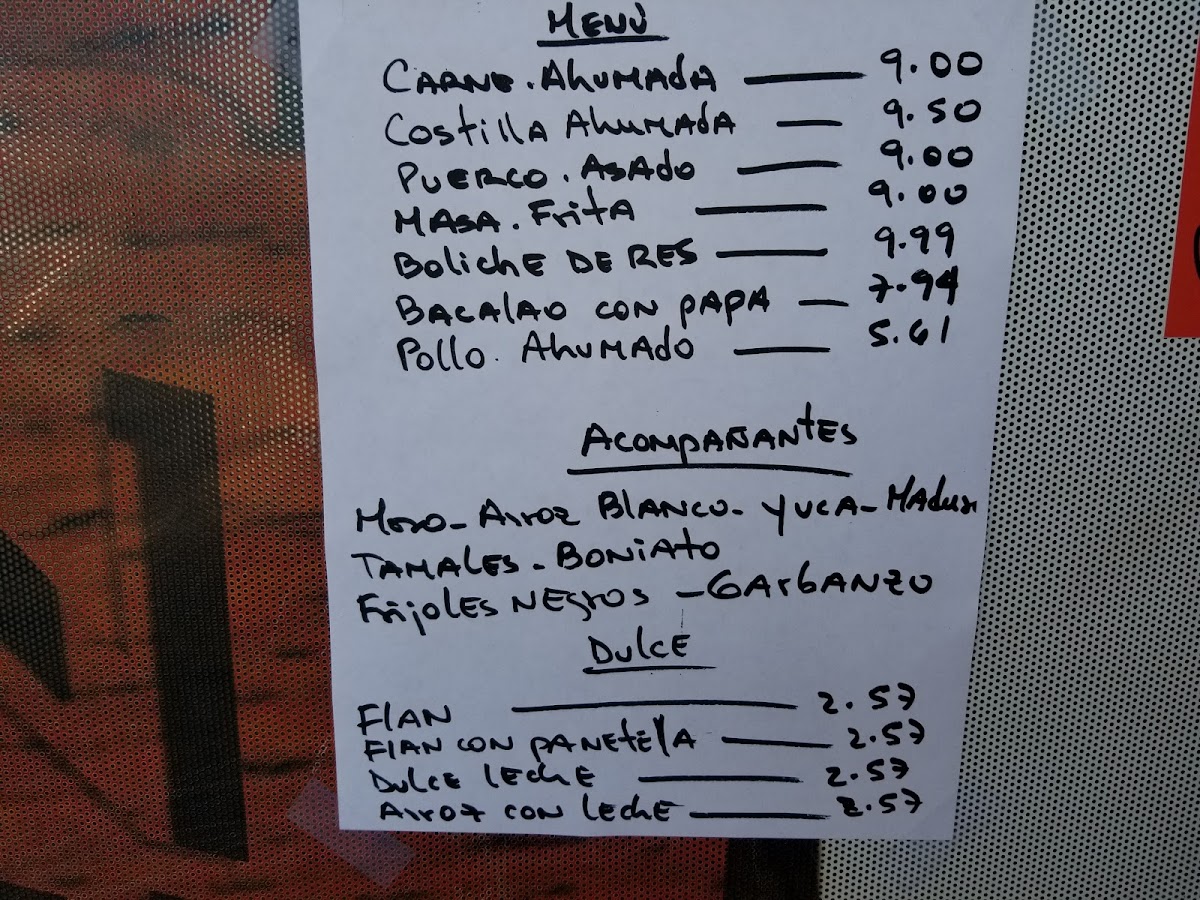 MENÚ
CARNE. AhUMADA — 9.00
Costilla AhUMADA — 9.50
PUERCO. ASADO — 9.00
MASA. FritA — 9.00
BolichE DE RES — 9.99
BACAlAO CON PAPA — 7.94
Pollo. AhUMADO — 5.61
ACOMPAÑANTES
Moro - Arroz BLANCO - YUCA - Maduro
TAMALES - BONIATO
FrijOLES NEgros - GArbANZO
DulcE
FlAN — 2.57
FlAN CON PANETElA — 2.57
DulcE lEchE — 2.57
Arroz CON LEchE — 2.57